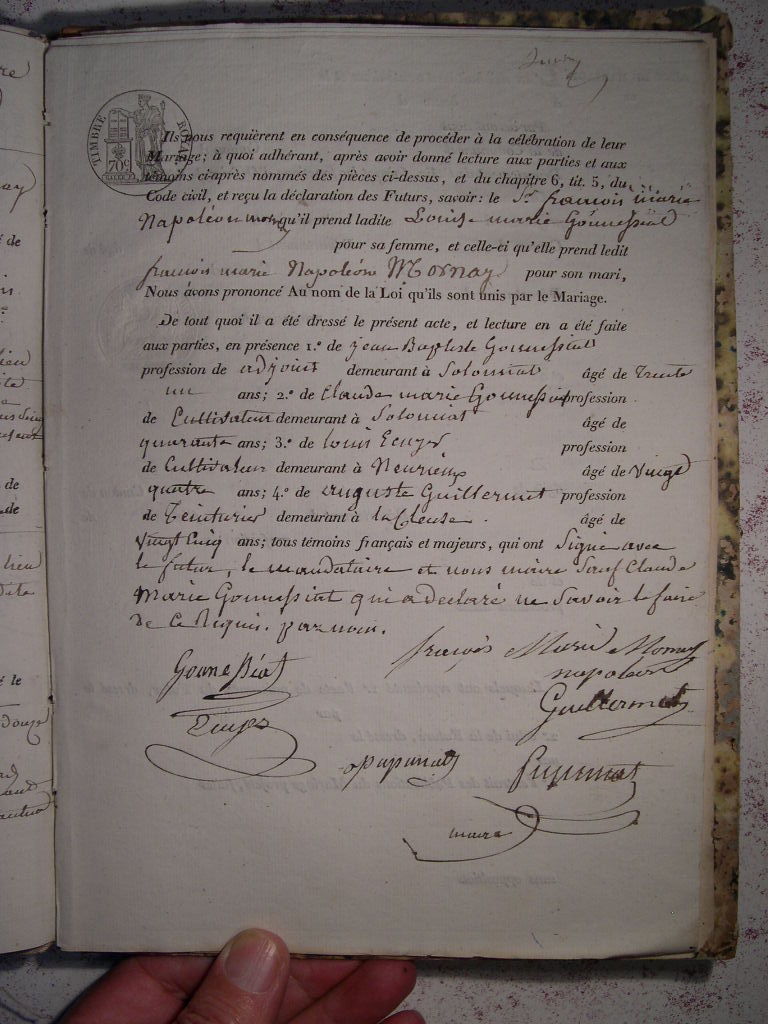 TIMBRE ROYAL
70c
Ils nous requièrent en conséquence de procéder à la célébration de leur
Mariage; à quoi adhérant, après avoir donné lecture aux parties et aux
témoins ci-après nommés des pièces ci-dessus, et du chapitre 6, tit. 5, du
Code civil, et reçu la déclaration des Futurs, savoir: le Sr. françois marie
Napoléon qu'il prend ladite Louise marie Gonnessiat
pour sa femme, et celle-ci qu'elle prend ledit
françois marie Napoléon Mornay pour son mari,
Nous avons prononcé Au nom de la Loi qu'ils sont unis par le Mariage.
De tout quoi il a été dressé le présent acte, et lecture en a été faite
aux parties, en présence 1.º de jean Baptiste Gonnessiat
profession de adjoint demeurant à Solomiat âgé de Trente
un ans; 2.º de Claude marie Gonnessiat profession
de Cultivateur demeurant à Solomiat âgé de
quarante ans; 3.º de louis Ecuyer profession
de Cultivateur demeurant à âgé de Vingt
quatre ans; 4.º de auguste Guillermet profession
de Teinturier demeurant à la Cleuse. âgé de
Vingt Cinq ans; tous témoins français et majeurs, qui ont Signé avec
le futur, le mandataire et nous maire Sauf Claude
Marie Gonnessiat qui a declaré ne Savoir le faire
de Ce Requis.
Gonnessiat
françois Marie Mornay
napoleon
Guillermet
Ecuyer
maire